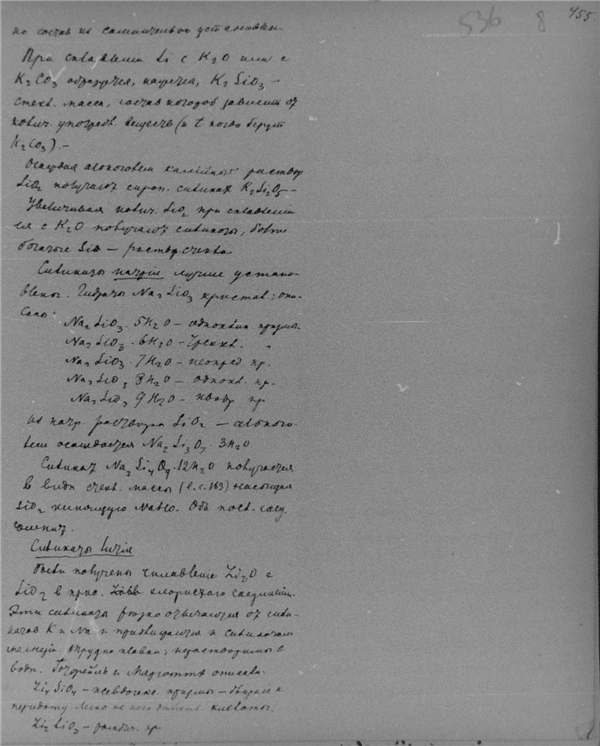 536 8 455.
но состав их сомнительно установлен
При сплавлении Si с K2O или с
K2CO3 образуется, K2SiO3 —
стекл. масса, состав которой зависит от
колич. употребл. веществ (и t когда берут
K2CO3). —
Осаждая алкоголем калийный раствор
SiO2 получают силикат K2Si2O5 —
Увеличивая колич. SiO2 при сплавлении
ея с K2O получают силикаты, более
богатые SiO — раств. стекла
Силикаты натрия лучше установ-
лены. Гидраты Na2SiO3 кристал: опи-
саны:
Na2SiO3 . 5H2O — призмы.
Na2SiO3 . 6H2O —
Na2SiO3 . 7H2O — неопред. пр.
Na2SiO3 8H2O — однокл. пр.
Na2SiO3 9H2O — пр
из натр. раствора SiO2 — алкого-
лем осаждается Na2Si3O7 . 3H2O
Силикат Na2Si4O9 . 12H2O получается
в виде стекл. массы (l. c. 163)
SiO2 кипящую NaHO. Оба посл. соед.
Силикаты лития
были получены сплавление Li2O с
SiO2 в хлористого
Эти силикаты резко отличаются от сили-
катов K и Na и приближаются к силикатам
трудно плавки, нерастворимы в
воде. описали
Li4SiO4 — призмы —
перидоту. Легко кислоты.
Li2SiO3 — ромбич. пр.